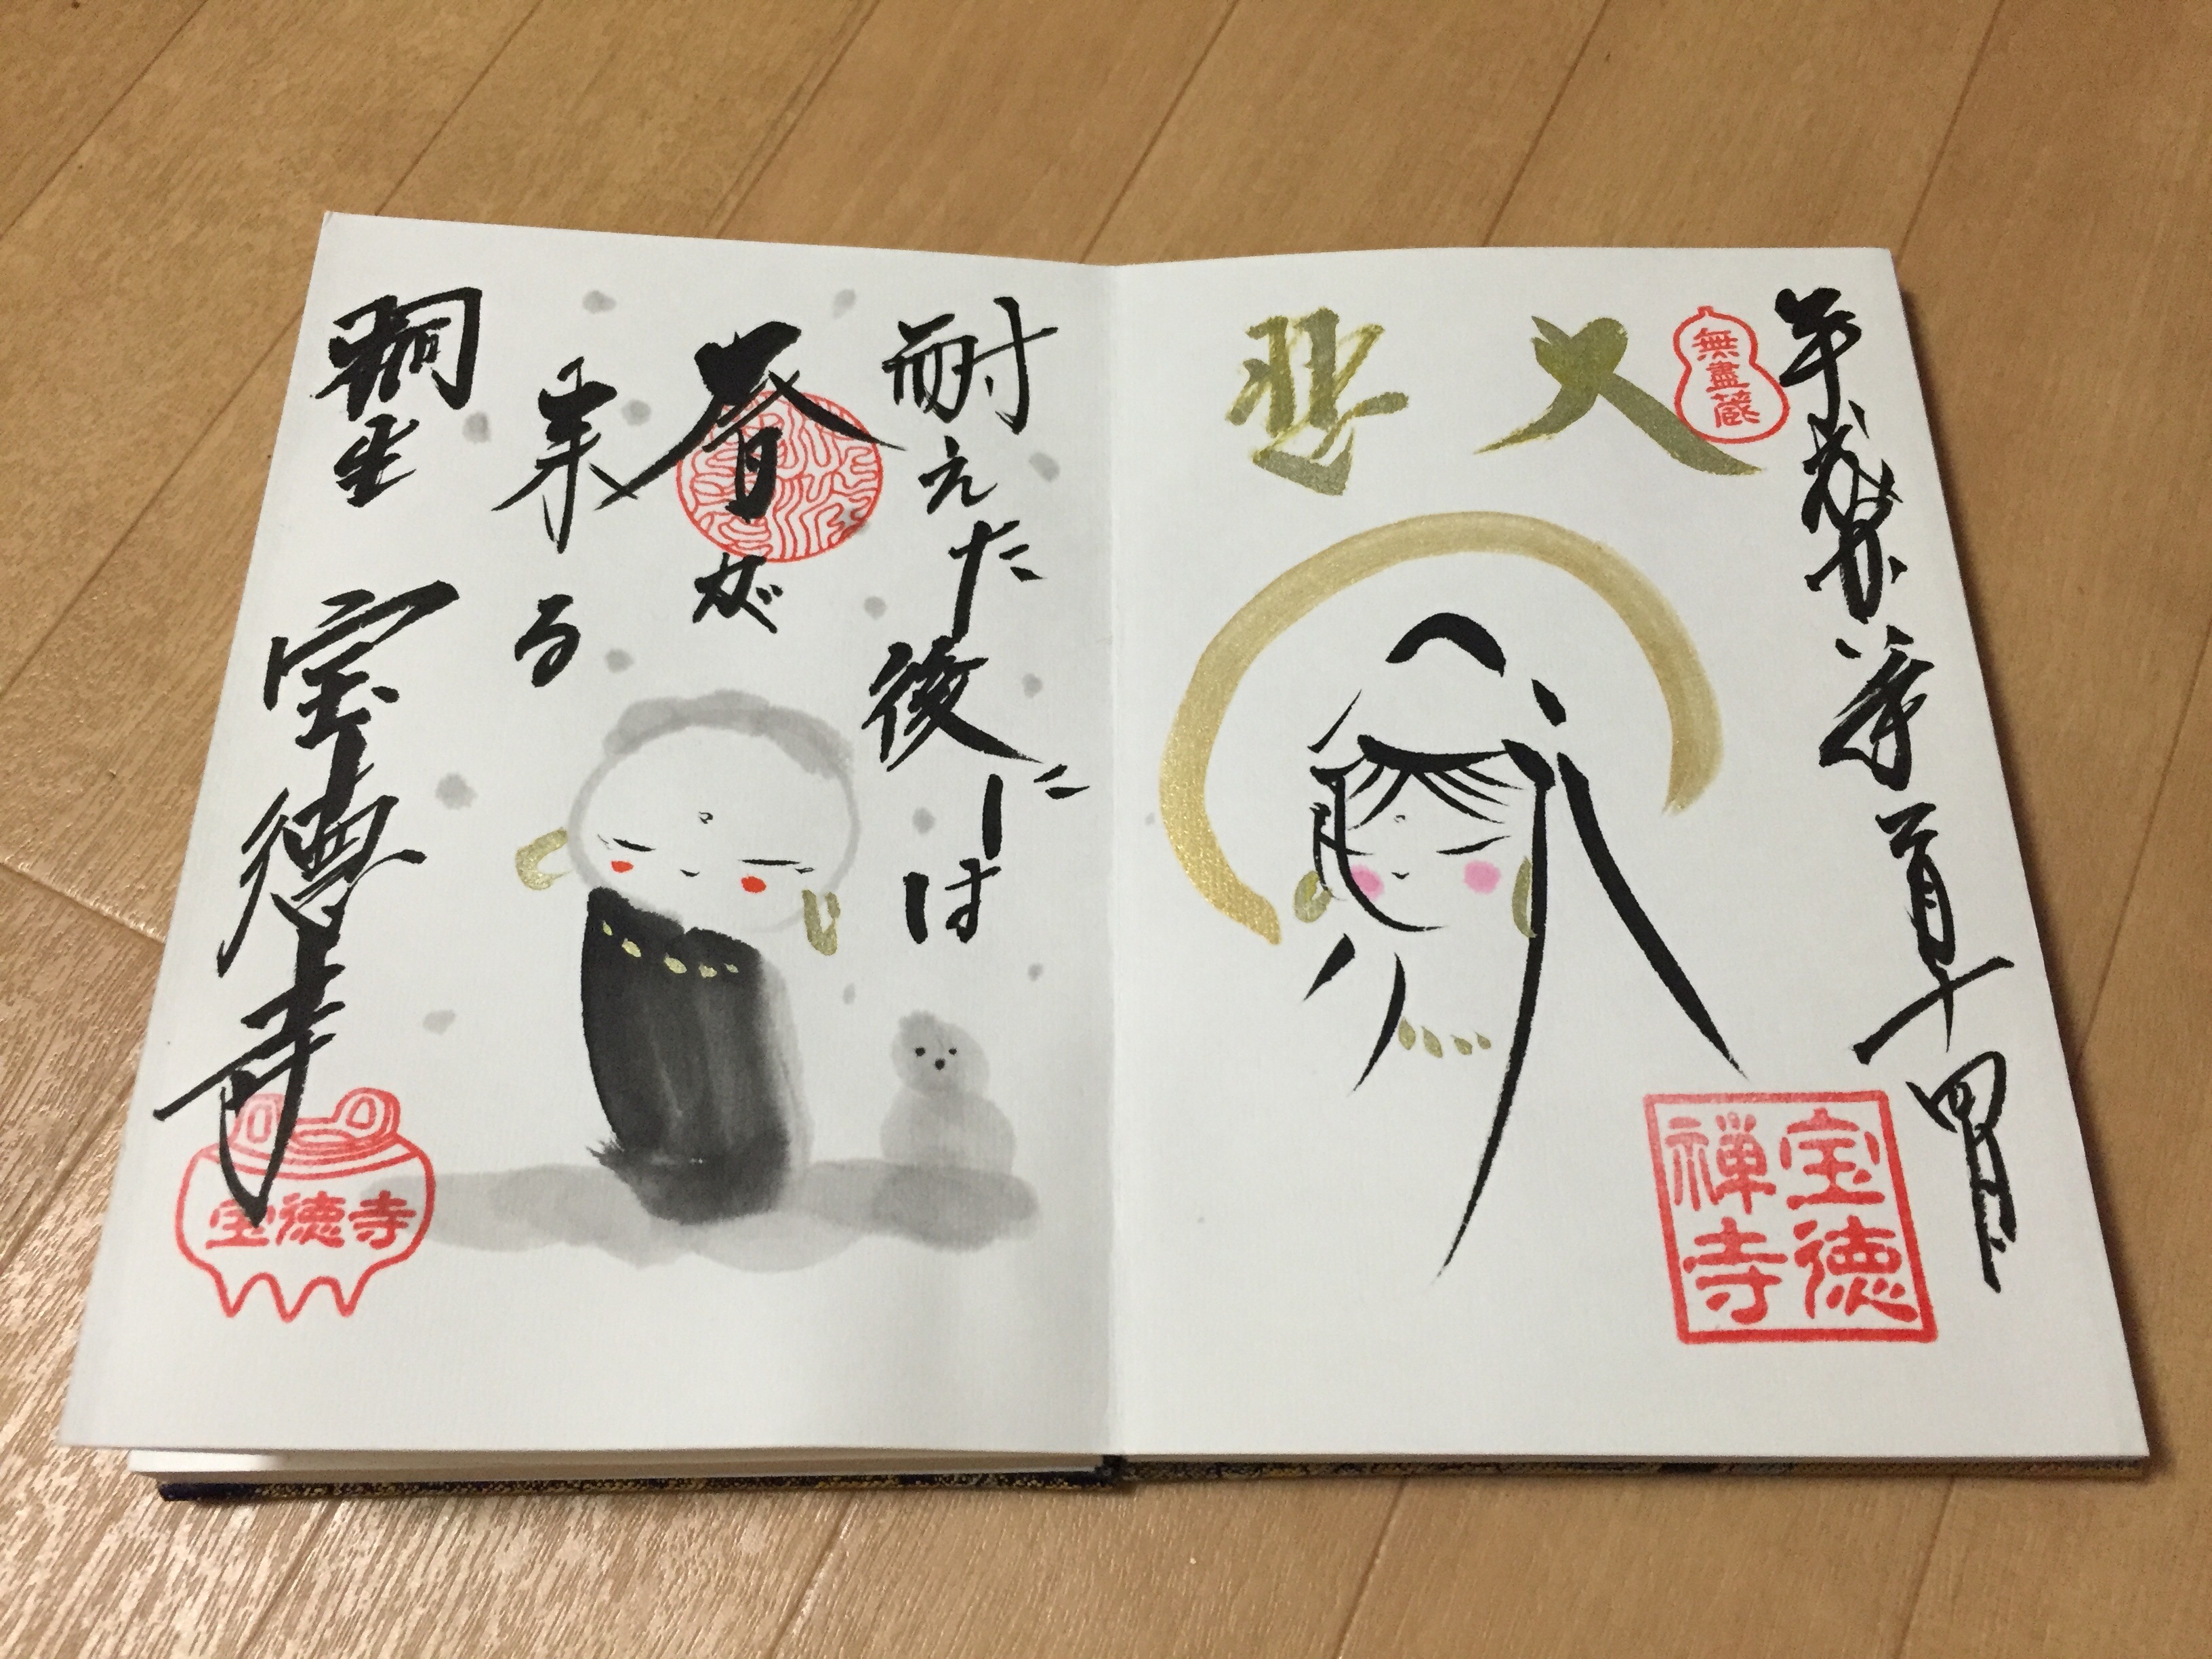 一月十四日
無盡蔵
大悲
宝徳
禅寺
耐えた後には
春が
来る
桐生 宝徳寺
宝徳寺